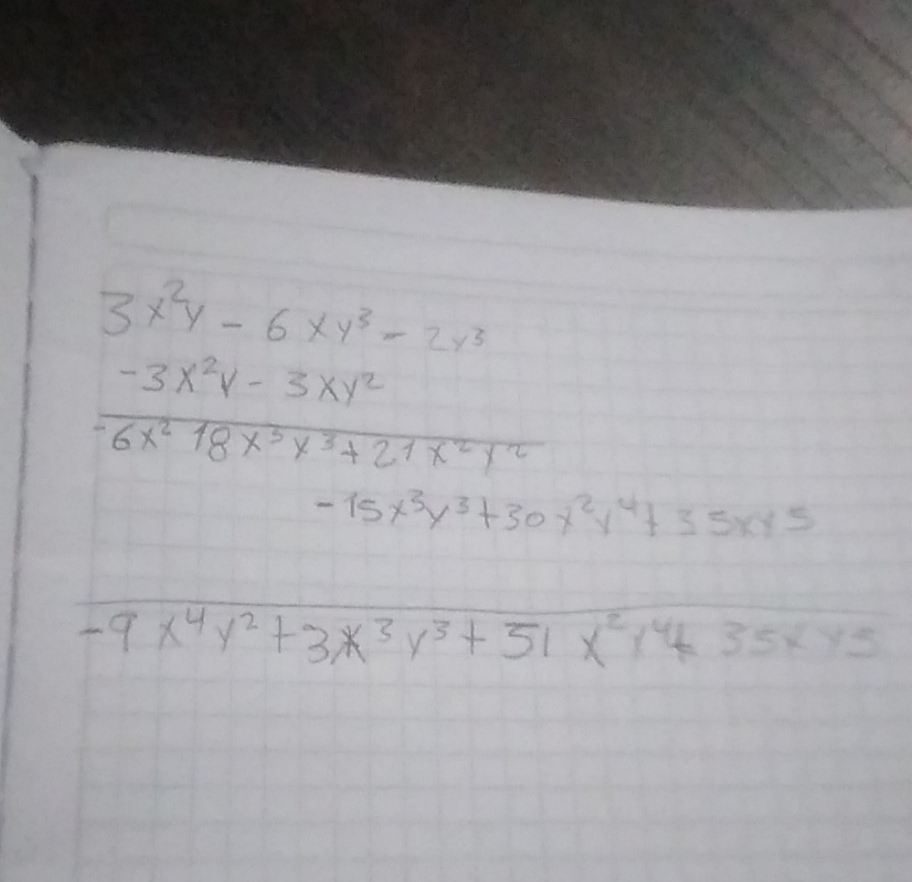 3x²y - 6xy³ - 2y³
-3x²y - 3xy²
-6x² 18x³y³+21x²y²
-15x³y³+30x²y⁴+35xy5
-9x⁴y²+3x³y³+51x²y⁴+35xy5